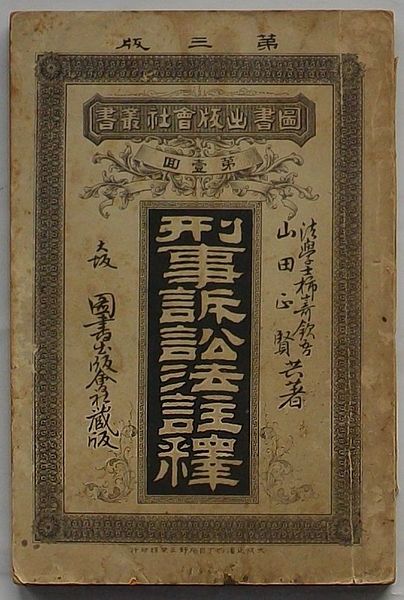 第三版
圖書出版會社叢書
第壹回
法學士柿嵜欽吾
山田正賢 共著
刑事訴訟法註釋
大坂 圖書出版會社藏版